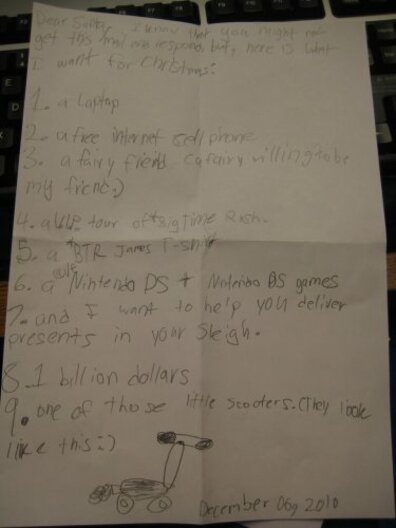 Dear Santa, I know that you might not
get this mail and respond but, here is what
I want for Christmas:
1. a laptop
2. a free internet cell phone
3. a fairy friend (a fairy willing to be
my friend)
4. a tour of Big Time Rush.
5. a BTR James T-shirt
6. a Nintendo DS + Nintendo DS games
7. and I want to help you deliver
presents in your sleigh.
8. 1 billion dollars
9. one of those little scooters. (They look
like this:)
December 06, 2010